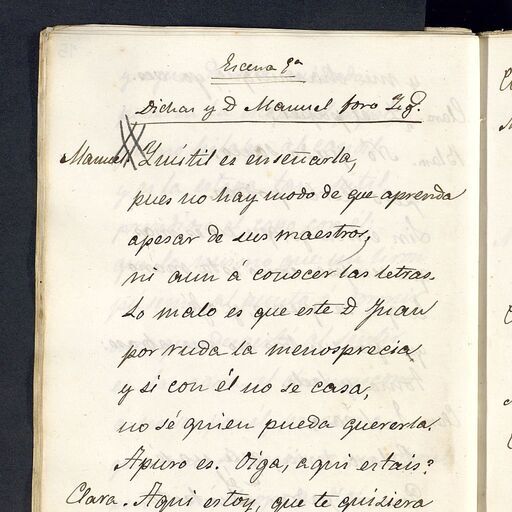 Escena 9ª
Dichas y D Manuel foro Izqª.
Manuel. Inútil es enseñarla,
pues no hay modo de que aprenda
apesar de sus maestros,
ni aun á conocer las letras.
Lo malo es que este D Juan
por ruda la menosprecia
y si con él no se casa,
no sé quien pueda quererla.
Apuro es. Oiga, aqui estais?
Clara. Aqui estoy, que te quisiera